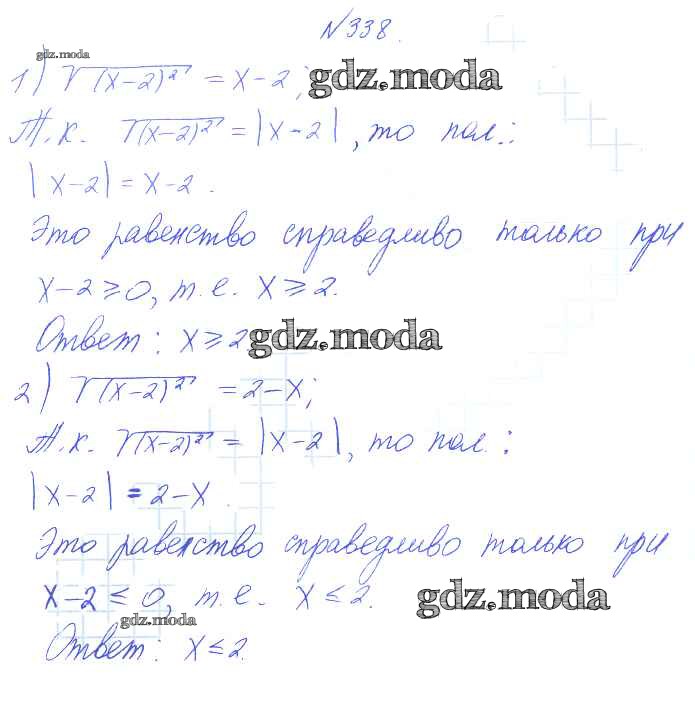 №338.
gdz.moda
1) √(x-2)² = x-2; gdz.moda
Т.к. √(x-2)² = |x-2|, то пол.:
|x-2| = x-2.
Это равенство справедливо только при
x-2≥0, т.е. x≥2.
Ответ: x≥2 gdz.moda
2) √(x-2)² = 2-x;
Т.к. √(x-2)² = |x-2|, то пол.:
|x-2| = 2-x.
Это равенство справедливо только при
x-2≤0, т.е. x≤2. gdz.moda
gdz.moda
Ответ: x≤2.